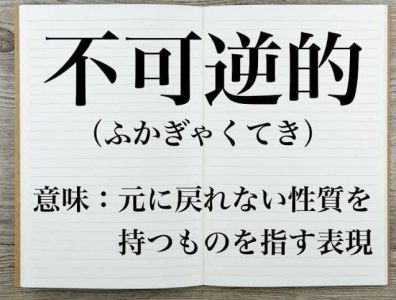 不可逆的
（ふかぎゃくてき）
意味：元に戻れない性質を
持つものを指す表現